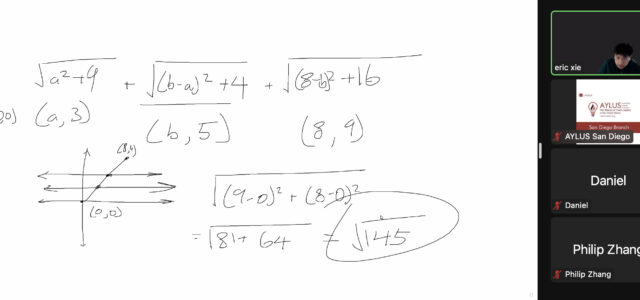 √a²+9 + √(b-a)²+4 + √(8-b)²+16
(a,3) (b,5) (8,9)
(8,9)
(0,0)
√(9-0)²+(8-0)²
=√81+64 = √145
eric xie
AYLUS
San Diego Branch
AYLUS San Diego
Daniel
Daniel
Philip Zhang
Philip Zhang